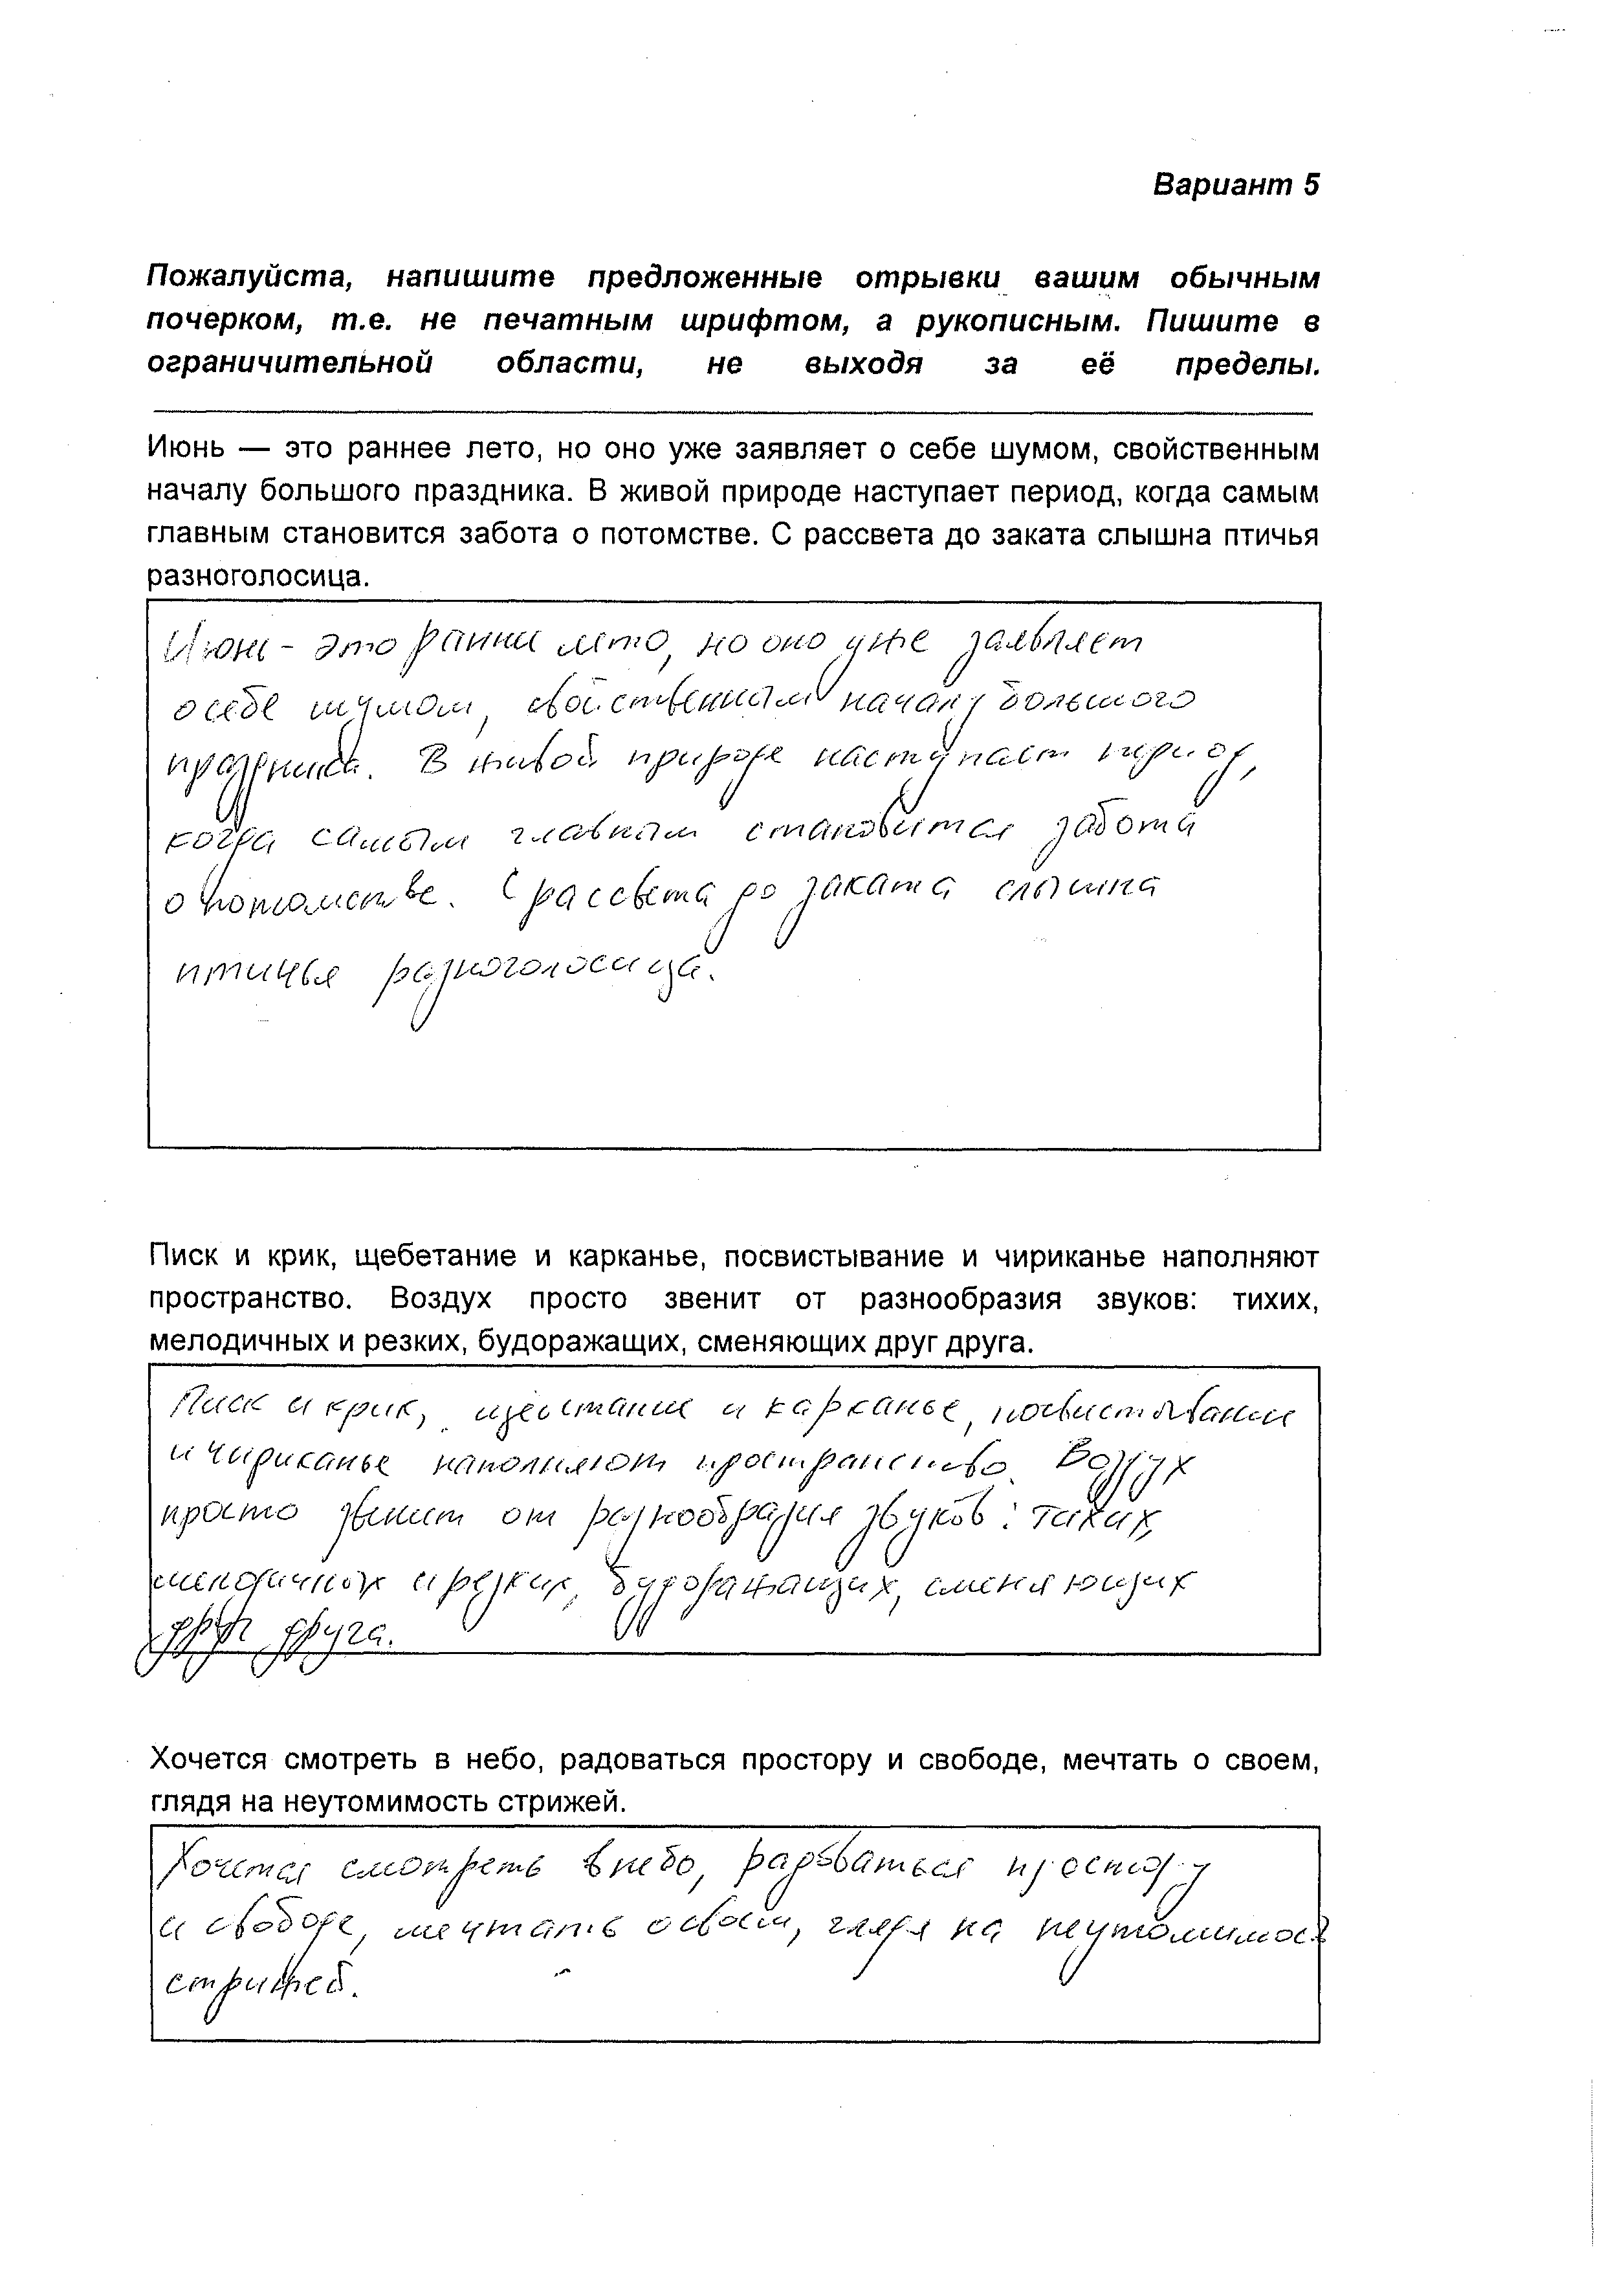 Вариант 5
Пожалуйста, напишите предложенные отрывки вашим обычным
почерком, т.е. не печатным шрифтом, а рукописным. Пишите в
ограничительной области, не выходя за её пределы.
Июнь — это раннее лето, но оно уже заявляет о себе шумом, свойственным
началу большого праздника. В живой природе наступает период, когда самым
главным становится забота о потомстве. С рассвета до заката слышна птичья
разноголосица.
Июнь - это ранни лето, но оно уже заявляет
о себе шумом, свойственным началу большого
праздника. В живой природе наступает период,
когда самым главным становится забота
о потомстве. С рассвета до заката слышна
птичья разноголосица.
Писк и крик, щебетание и карканье, посвистывание и чириканье наполняют
пространство. Воздух просто звенит от разнообразия звуков: тихих,
мелодичных и резких, будоражащих, сменяющих друг друга.
Писк и крик, щебетание и карканье, посвистывание
и чириканье наполняют пространство. Воздух
просто звенит от разнообразия звуков: тихих,
мелодичных и резких, будоражащих, сменяющих
друг друга.
Хочется смотреть в небо, радоваться простору и свободе, мечтать о своем,
глядя на неутомимость стрижей.
Хочется смотреть в небо, радоваться простору
и свободе, мечтать о своем, глядя на неутомимость
стрижей.